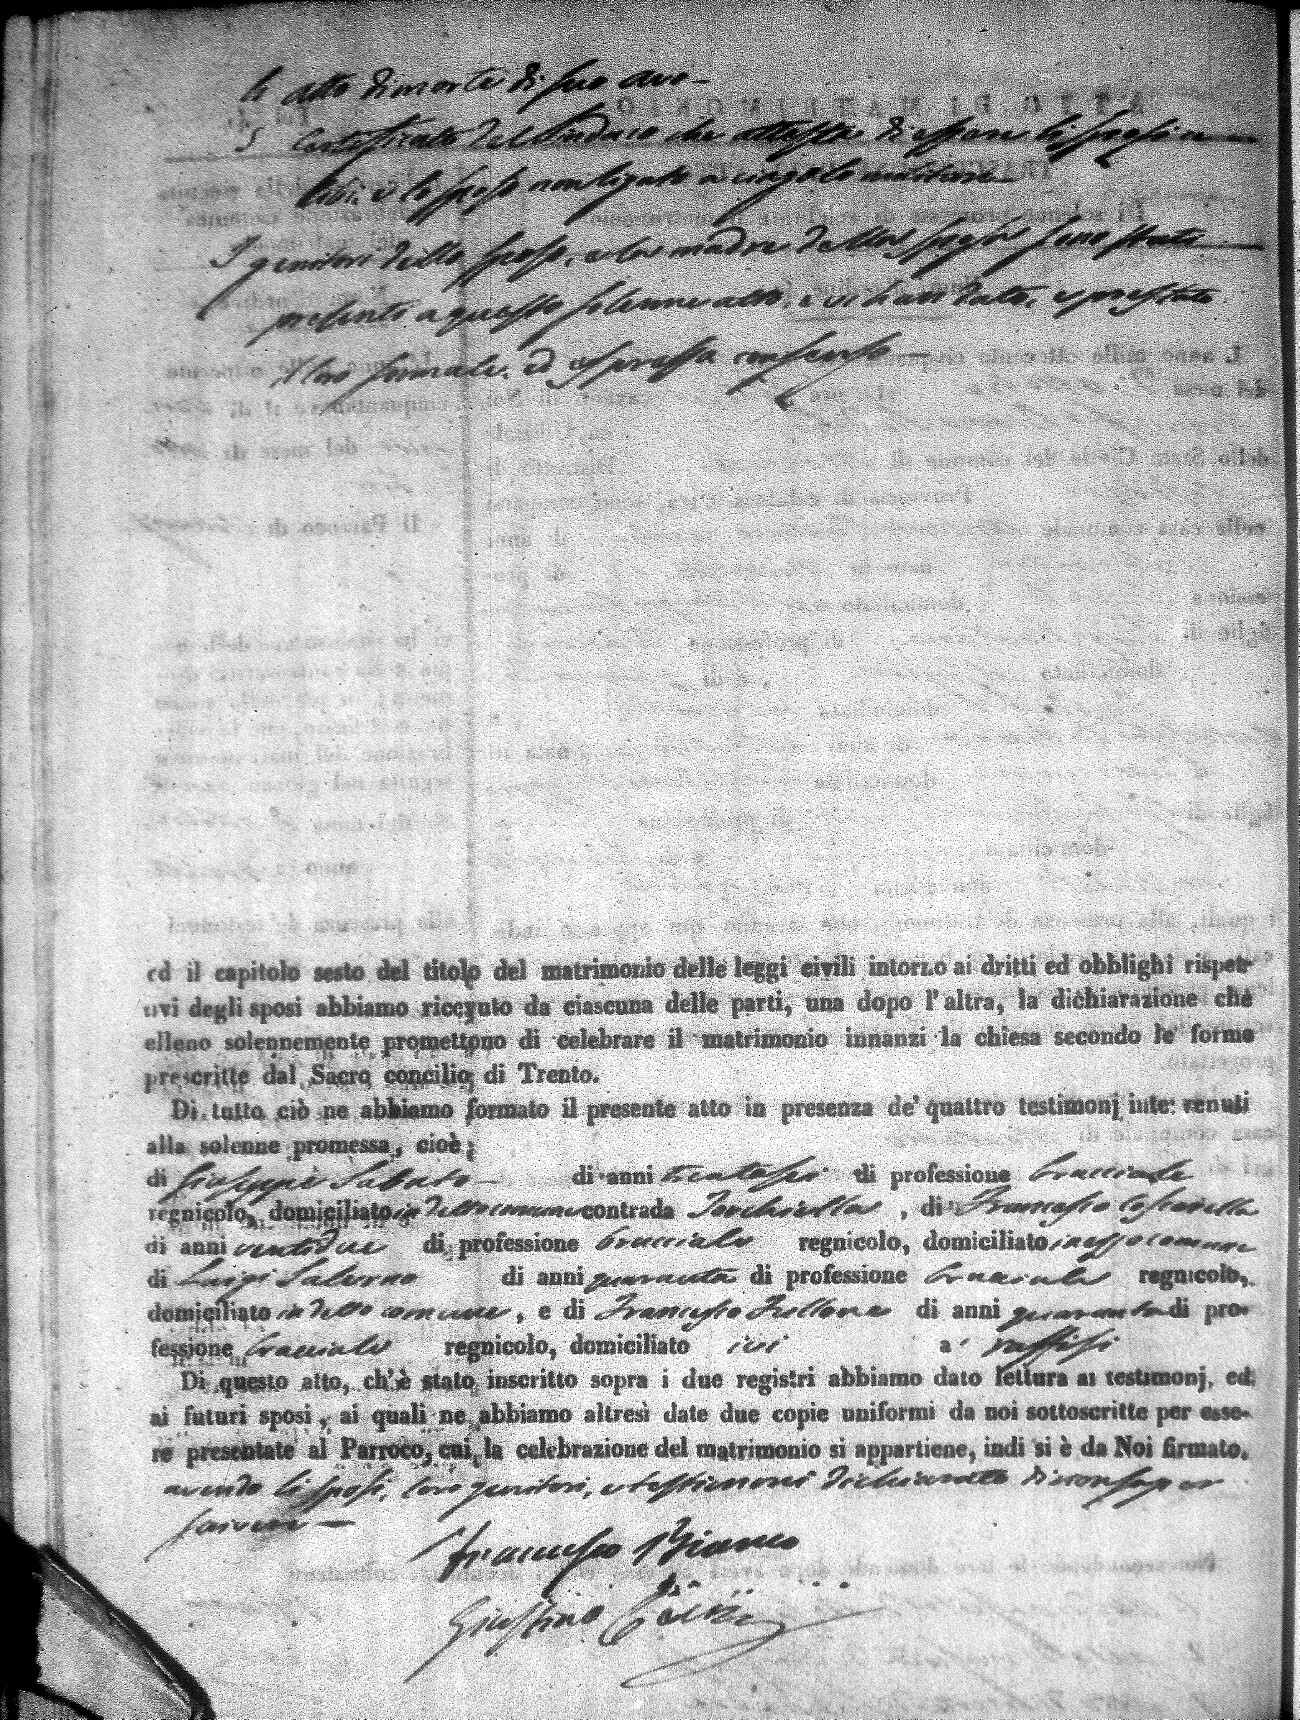 atto di morte di suo avo
5 Certificato del Sindaco che attesta di essere li sposi
e lo sposo non legato a cingolo militare
I genitori dello sposo, e la madre della sposa sono stati
presenti a questo solenne atto, e vi han dato, e prestato
il loro formale, ed espresso consenso
ed il capitolo sesto del titolo del matrimonio delle leggi civili intorno ai dritti ed obblighi rispet-
ivi degli sposi abbiamo ricevuto da ciascuna delle parti, una dopo l'altra, la dichiarazione che
elleno solennemente promettono di celebrare il matrimonio innanzi la chiesa secondo le forme
prescritte dal Sacro concilio di Trento.
Di tutto ciò ne abbiamo formato il presente atto in presenza de' quattro testimonj intervenuti
alla solenne promessa, cioè;
di Giuseppe Sabato di anni trentasei di professione bracciale
regnicolo, domiciliato in detto comune contrada , di Francesco
di anni ventidue di professione bracciale regnicolo, domiciliato in esso comune
di Luigi Salerno di anni quaranta di professione bracciale regnicolo,
domiciliato in detto comune, e di Francesco di anni quaranta di pro-
fessione bracciale regnicolo, domiciliato ivi a'
Di questo atto, ch'è stato inscritto sopra i due registri abbiamo dato lettura ai testimonj, ed
ai futuri sposi, ai quali ne abbiamo altresì date due copie uniformi da noi sottoscritte per esse-
re presentate al Parroco, cui la celebrazione del matrimonio si appartiene, indi si è da Noi firmato,
avendo li sposi, loro genitori, e testimoni dichiarato di non saper
scrivere
Francesco Bianco
Giustino